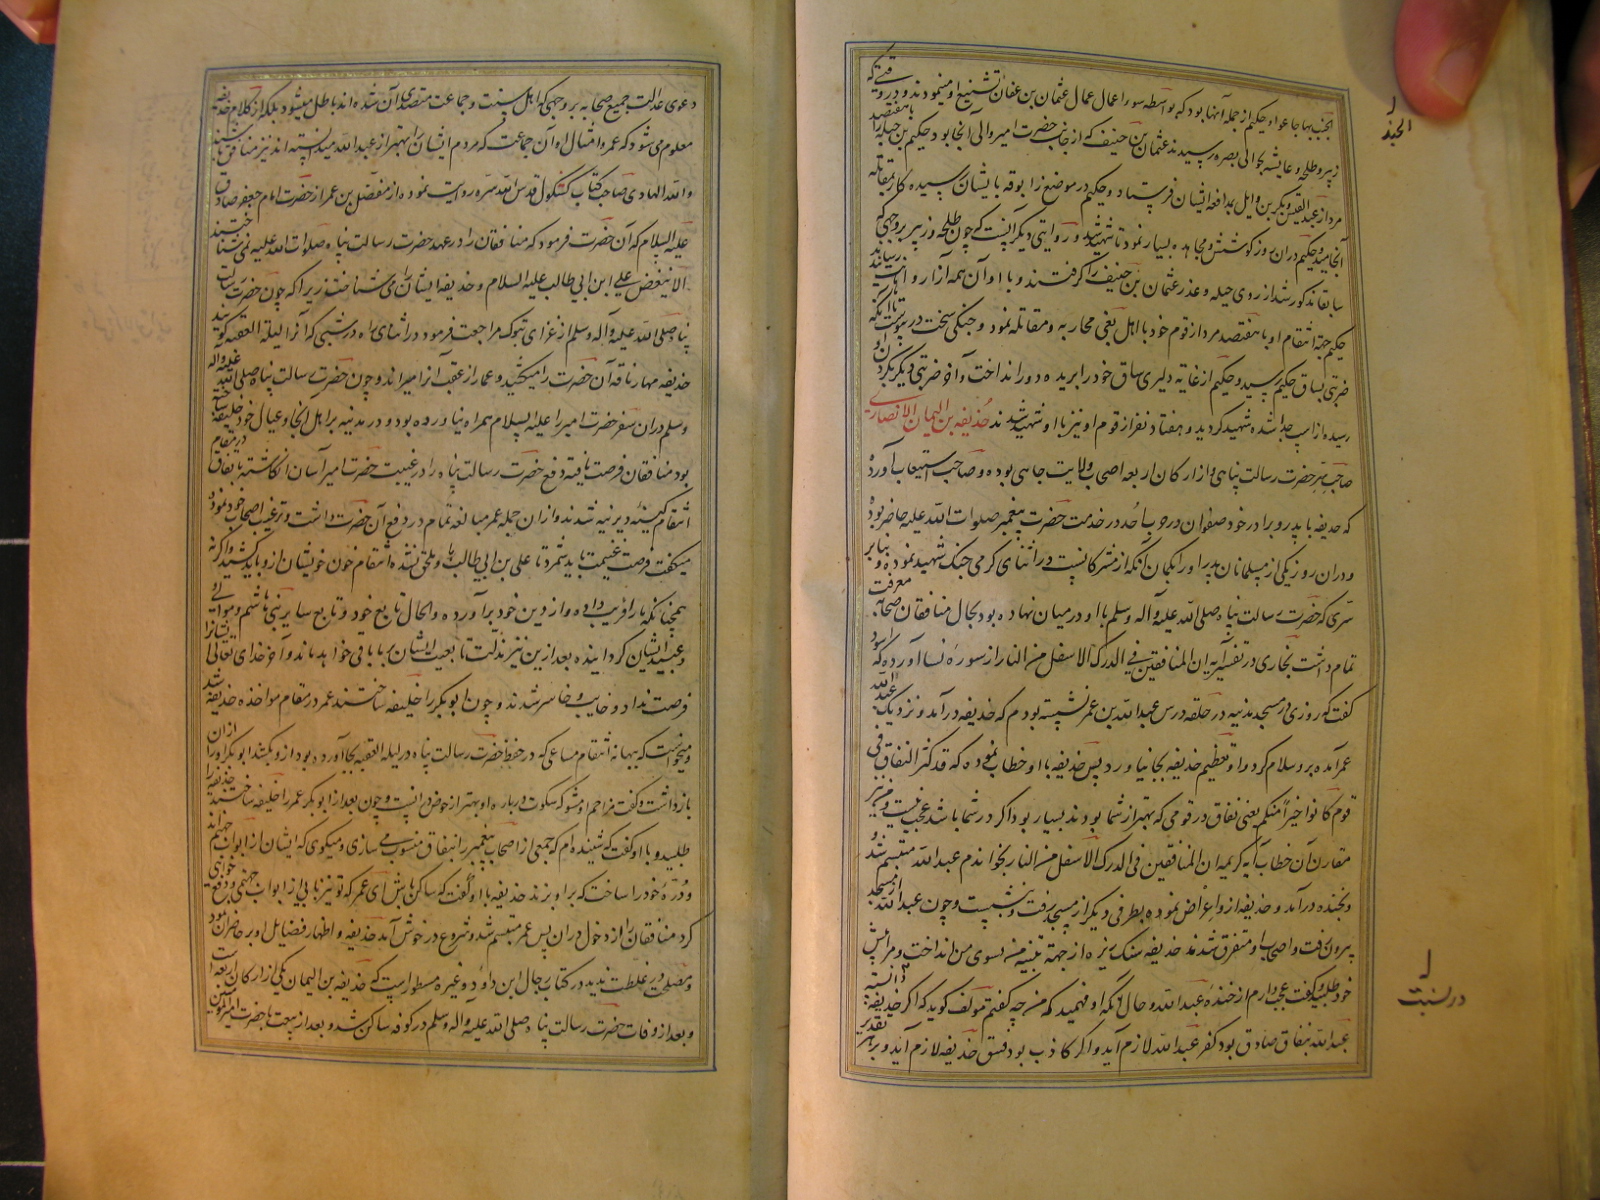 زبیر و طلحه و عایشه بحوالی بصره رسیدند عثمان بن حنیف که از جانب حضرت امیر والی آنجا بود حکیم بن جبله را با هفتصد
مرد از عبد القیس و بکر بن وایل بمدافعه ایشان فرستاد و حکیم در موضع زابوقه بایشان رسیده کار بمقاتله
انجامید و حکیم در آن روز کوشش و مجاهده بسیار نمود تا شهید شد و روایتی دیگر آنست که چون طلحه و زبیر بر وجهی که
سابقا مذکور شد از روی حیله و غدر عثمان بن حنیف را گرفتند و با او آن همه آزار و اهانت رسانیدند
حکیم جهة انتقام او با هفتصد مرد از قوم خود با اهل بغی محاربه و مقاتله نمود و جنکی سخت در پیوست تا آنکه
ضربتی بساق حکیم رسید و حکیم از غایة دلیری ساق خود را بریده دور انداخت و آخر ضربتی دیکر بکردن او
رسیده از اسب جدا شده شهید کردید و هفتاد نفر از قوم او نیز با او شهید شدند حذیفه بن الیمان الانصاری
صاحب سر حضرت رسالت پناهی و از ارکان اربعه اصحاب ولایت جاهی بوده و صاحب استیعاب آورده
که حذیفه با پدر و برادر خود صفوان در حرب احد در خدمت حضرت پیغمبر صلوات الله علیه حاضر بود
و در آن روز یکی از مسلمانان پدر او را بکمان آنکه از مشرکانست در اثنای کرمی جنک شهید نموده و بنابر
سری که حضرت رسالت پناه صلی الله علیه و آله و سلم با او در میان نهاده بود بحال منافقان صحابه معرفت
تمام داشت بخاری در تفسیر آیه ان المنافقین فی الدرک الاسفل من النار از سوره نسا آورده که اسود
کفت که روزی در مسجد مدینه در حلقه درس عبد الله بن عمر نشسته بودم که حذیفه درآمد و نزدیک عبد الله
عمر آمده برو سلام کرد و او تعظیم حذیفه بجا نیاورد پس حذیفه با او خطاب نموده که قد کثر النفاق فی
قوم کانوا خیرا منکم یعنی نفاق در قومی که بهتر از شما بودند بسیار بود اکر در شما باشد عجب نیست و نیز
مقارن آن خطاب آیه کریمه ان المنافقین فی الدرک الاسفل من النار بخواند عبد الله متبسم شد و
بخنده درآمد و حذیفه ازو اعراض نموده بطرفی دیکر از مسجد رفت و بنشست و چون عبد الله از مسجد
بیرون رفت و اصحاب او متفرق شدند حذیفه سنک ریزه از جهة تنبیه من بسوی من انداخت و مرا پیش
خود طلبید و کفت عجب دارم از خنده عبد الله و حال آنکه او فهمید که من چه کفتم مؤلف کوید که اکر حذیفه دانسته
عبد الله بنفاق صادق بود کفر عبد الله لازم آید و اکر کاذب بود فسق حذیفه لازم آید و بر هر تقدیر
در نسبت
دعوی عدالت جمیع صحابه بر وجهی که اهل سنت و جماعت متصدی آن شده اند باطل میشود بلکه از کلام حذیفه
معلوم می شود که عمر و امثال او آن جماعت که مردم ایشان را بهتر از عبد الله میدانسته اند نیز منافق باشند
والله الهادی صاحب کتاب کشکول قدس الله سره روایت نموده از مفضل بن عمر از حضرت امام جعفر صادق
علیه السلام که آن حضرت فرمود که منافقان را در عهد حضرت رسالت پناه صلوات الله علیه نمی شناختند
الا ببغض علی ابن ابی طالب علیه السلام و حذیفه ایشان را می شناخت زیرا که چون حضرت رسالت
پناه صلی الله علیه و آله و سلم از غزای تبوک مراجعت فرمود در اثنای راه در شبی که آنرا لیلة العقبه کویند
حذیفه مهار ناقه آن حضرت را میکشید و عمار از عقب آنرا میراند و چون حضرت رسالت پناه صلی الله علیه و آله
و سلم در آن سفر حضرت امیر را علیه السلام همراه نیاورده بود و در مدینه بر اهل آنجا و عیال خود خلیفه ساخته
بود منافقان فرصت یافته دفع حضرت رسالت پناه را در غیبت حضرت امیر آسان انکاشته باتفاق در مقام
انتقام کینه دیرینه شدند و از آن جمله عمر مبالغه تمام در دفع آن حضرت داشت و ترغیب اصحاب خود نموده
میکفت فرصت غنیمت باید شمرد تا علی بن ابی طالب باو ملحق نشده انتقام خون خویشان ازو باید کشید و اکر نه
همچنانکه ما را فریب داده و از دین خود برآورده و الحال تابع خود و تابع سایر بنی هاشم و موالی
و عبید ایشان کردانیده بعد ازین نیز مذلت تابعیت ایشان بر ما باقی خواهد ماند و آخر خدای تعالی ایشانرا
فرصت نداد و خایب و خاسر شدند و چون ابو بکر را خلیفه ساختند عمر در مقام مواخذه حذیفه شد
و میخواست که ببهانه انتقام مساعی که در حفظ حضرت رسالت پناه در لیلة العقبه بجا آورده بود ازو بکشد ابو بکر او را از آن
باز داشت و کفت مزاحم او مشو که سکوت درباره او بهتر از خوض در آنست و چون بعد از ابو بکر عمر را خلیفه ساختند حذیفه را
طلبید و با او کفت که شنیده ام که جمعی از اصحاب پیغمبر را بنفاق منسوب می سازی و میکوی که ایشان از ابواب جهنم اند
و دره خود را ساخت که بر او بزند حذیفه با او کفت که ساکن باش ای عمر که تو نیز بابی از ابواب جهنمی و دفع خواهی
کرد منافقان را از دخول در آن پس عمر متبسم شد و شروع در خوش آمد حذیفه و اظهار فضایل او بر حاضران نمود
در کتاب رجال ابن داود و غیره مسطور است که حذیفه بن الیمان یکی از ارکان اربعه است
و بعد از وفات حضرت رسالت پناه صلی الله علیه و آله و سلم در کوفه ساکن شد و بعد از بیعت با حضرت امیر المؤمنین